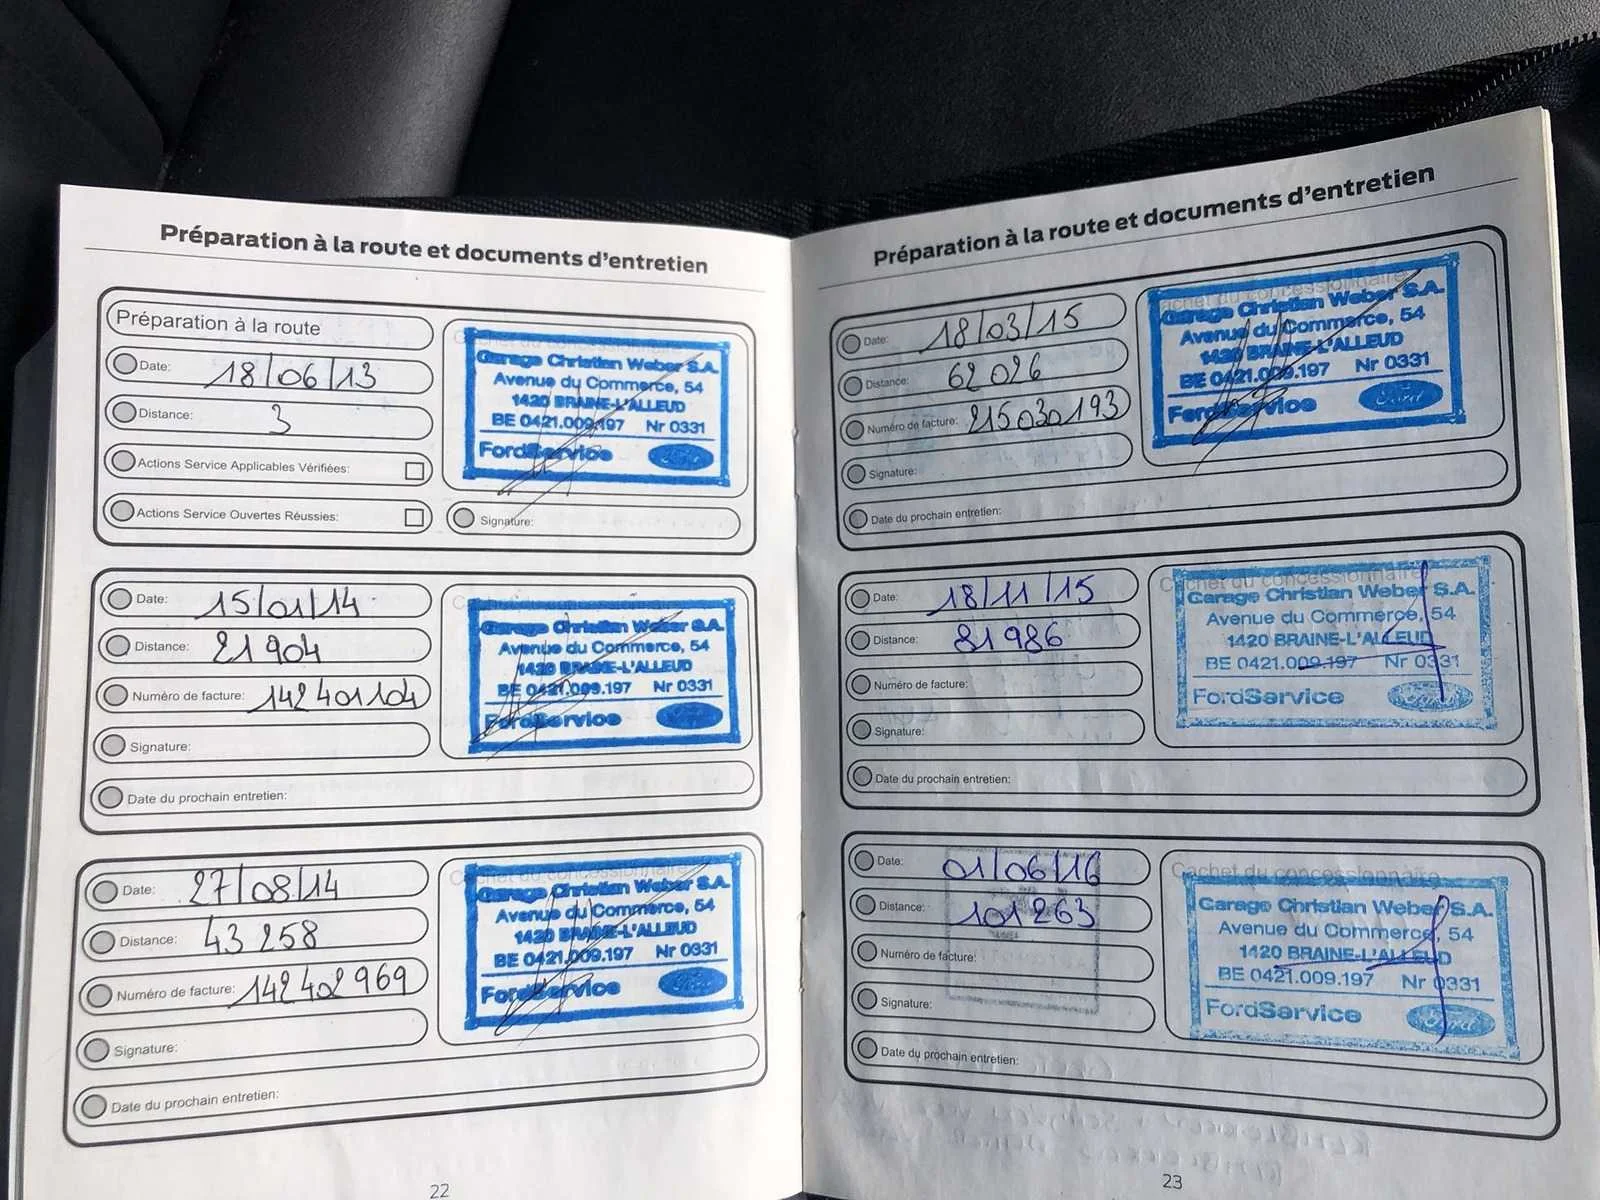 Préparation à la route et documents d'entretien
Préparation à la route
Date: 18/06/13
Distance: 3
Actions Service Applicables Vérifiées:
Actions Service Ouvertes Réussies:
Cachet du concessionnaire
Garage Christian Weber S.A.
Avenue du Commerce, 54
1420 BRAINE-L'ALLEUD
BE 0421.009.197 Nr 0331
FordService Ford
Signature:
Date: 15/01/14
Distance: 21904
Numéro de facture: 142401104
Signature:
Date du prochain entretien:
Cachet du concessionnaire
Garage Christian Weber S.A.
Avenue du Commerce, 54
1420 BRAINE-L'ALLEUD
BE 0421.009.197 Nr 0331
FordService Ford
Date: 27/08/14
Distance: 43258
Numéro de facture: 142402969
Signature:
Date du prochain entretien:
Cachet du concessionnaire
Garage Christian Weber S.A.
Avenue du Commerce, 54
1420 BRAINE-L'ALLEUD
BE 0421.009.197 Nr 0331
FordService Ford
22
Préparation à la route et documents d'entretien
Date: 18/03/15
Distance: 62026
Numéro de facture: 215030193
Signature:
Date du prochain entretien:
Cachet du concessionnaire
Garage Christian Weber S.A.
Avenue du Commerce, 54
1420 BRAINE-L'ALLEUD
BE 0421.009.197 Nr 0331
FordService Ford
Date: 18/11/15
Distance: 81986
Numéro de facture:
Signature:
Date du prochain entretien:
Cachet du concessionnaire
Garage Christian Weber S.A.
Avenue du Commerce, 54
1420 BRAINE-L'ALLEUD
BE 0421.009.197 Nr 0331
FordService Ford
Date: 01/06/16
Distance: 101263
Numéro de facture:
Signature:
Date du prochain entretien:
Cachet du concessionnaire
Garage Christian Weber S.A.
Avenue du Commerce, 54
1420 BRAINE-L'ALLEUD
BE 0421.009.197 Nr 0331
FordService Ford
23